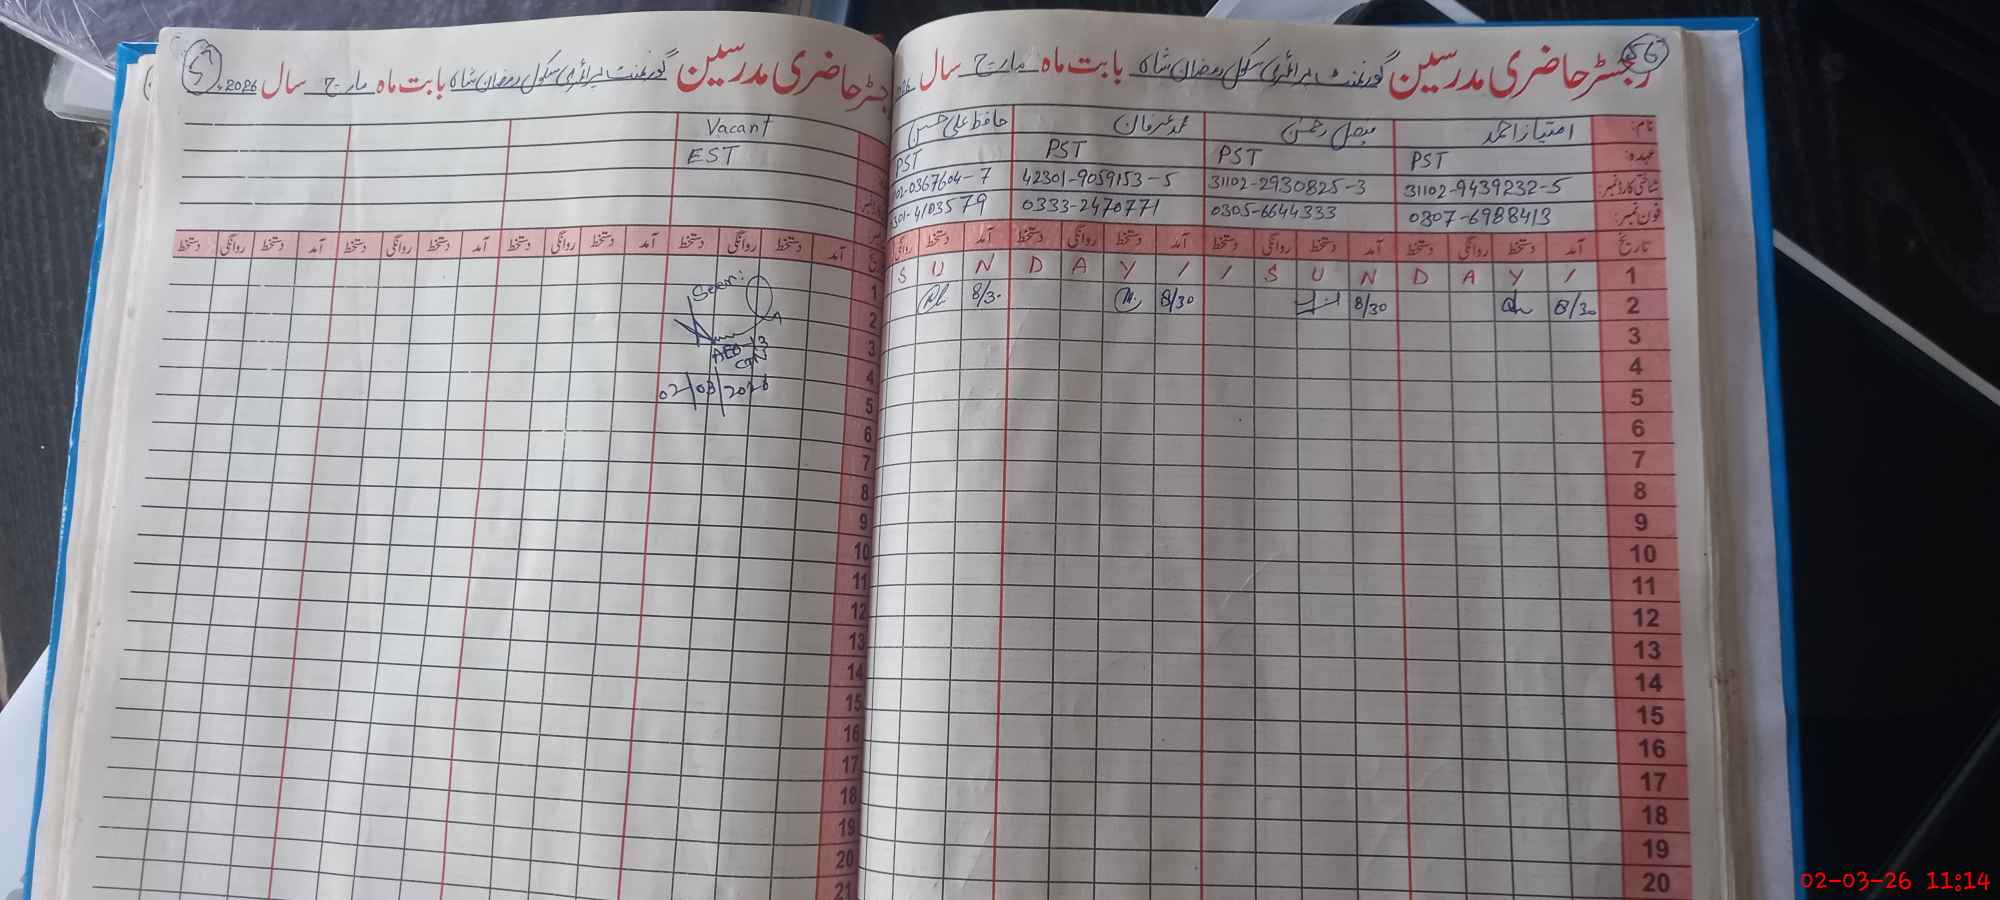 56
رجسٹر حاضری مدرسین گورنمنٹ پرائمری سکول رمضان شاہ بابت ماہ مارچ سال 026
نام: امتیاز احمد فیصل رحمن محمد عرفان حافظ علی حسن
عہدہ: PST PST PST PST
شناختی کارڈ نمبر: 31102-9439232-5 31102-2930825-3 42301-9059153-5 02-0367604-7
فون نمبر: 0307-6988413 0305-6644333 0333-2470771 301-4103579
تاریخ آمد دستخط روانگی دستخط آمد دستخط روانگی دستخط آمد دستخط روانگی دستخط آمد دستخط روانگی
S U N D A Y / / S U N D A Y / 1
8/30 8/30 8/30 8/30 2
3
4
5
6
7
8
9
10
11
12
13
14
15
16
17
18
19
20
جسٹر حاضری مدرسین گورنمنٹ پرائمری سکول رمضان شاہ بابت ماہ مارچ سال 2026
Vacant
EST
آمد دستخط روانگی دستخط آمد دستخط روانگی دستخط آمد دستخط روانگی دستخط آمد دستخط روانگی دستخط
1
Seen:
2
3
AEO-13
4
02/03/2026
5
6
7
8
9
10
11
12
13
14
15
16
17
18
19
20
21
02-03-26 11:14